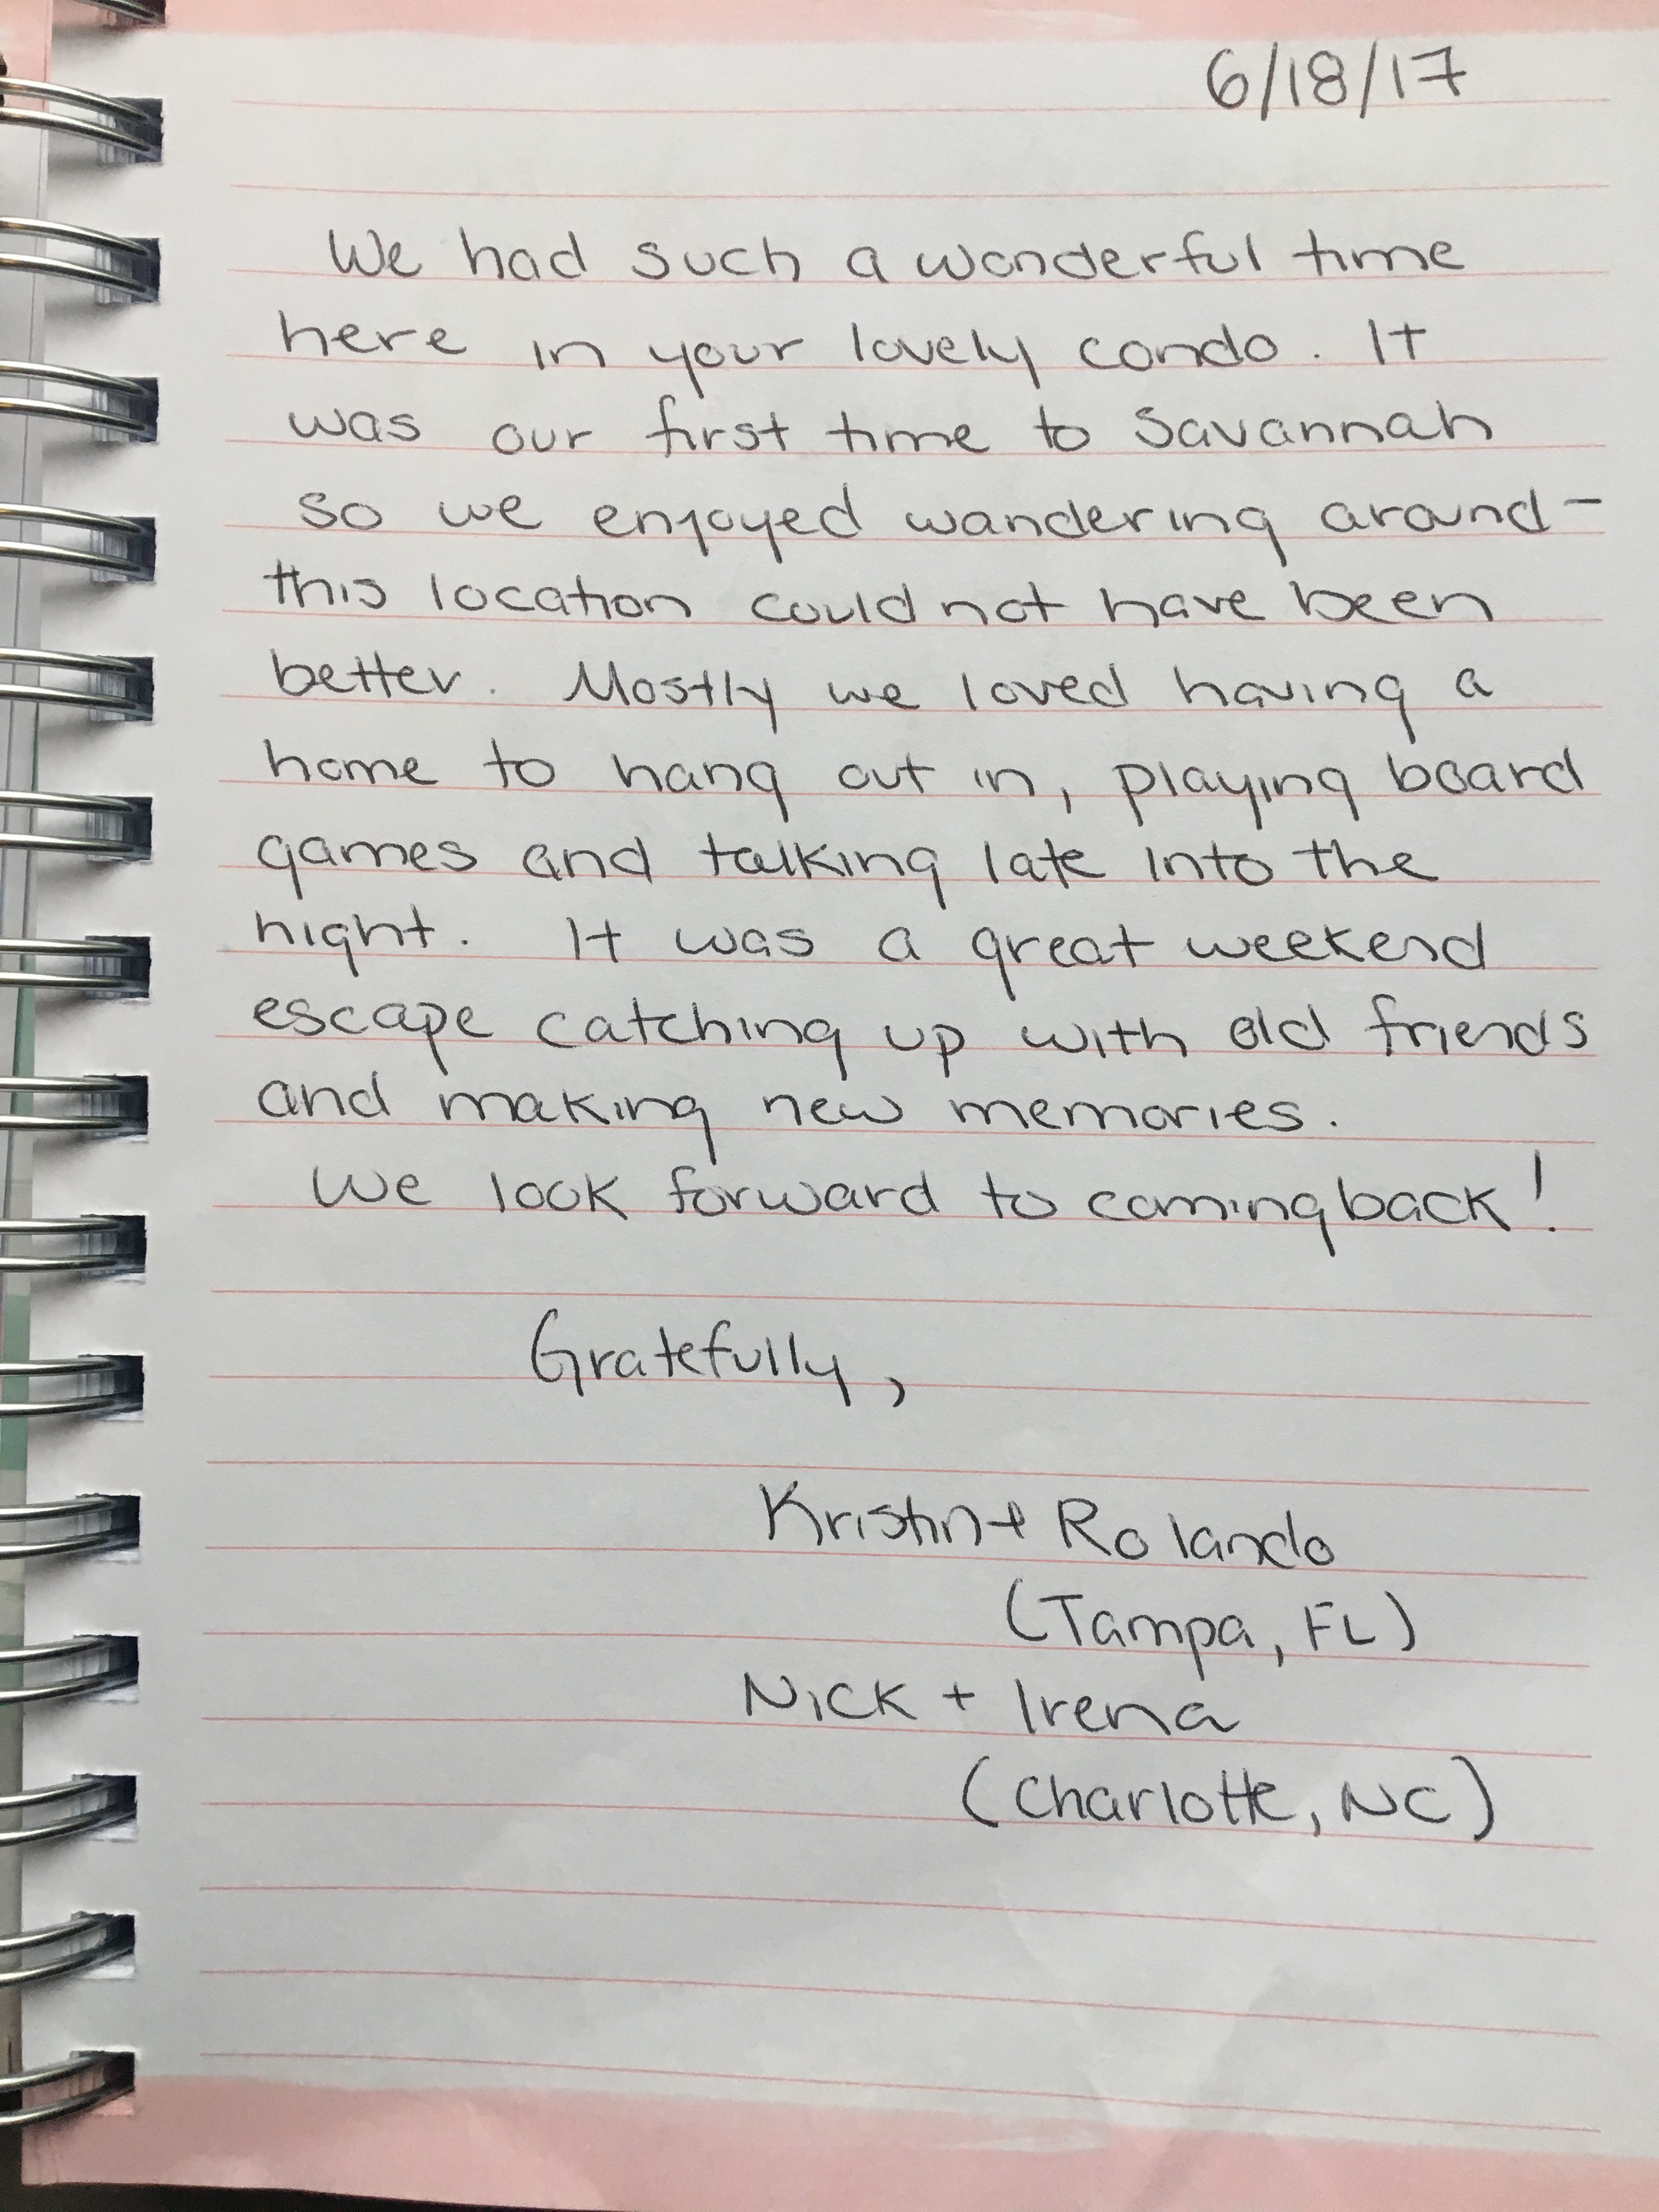 6/18/17
We had such a wonderful time
here in your lovely condo. It
was our first time to Savannah
so we enjoyed wandering around-
this location could not have been
better. Mostly we loved having a
home to hang out in, playing board
games and talking late into the
night. It was a great weekend
escape catching up with old friends
and making new memories.
We look forward to coming back!
Gratefully,
Kristin + Rolando
(Tampa, FL)
Nick + Irena
(Charlotte, NC)